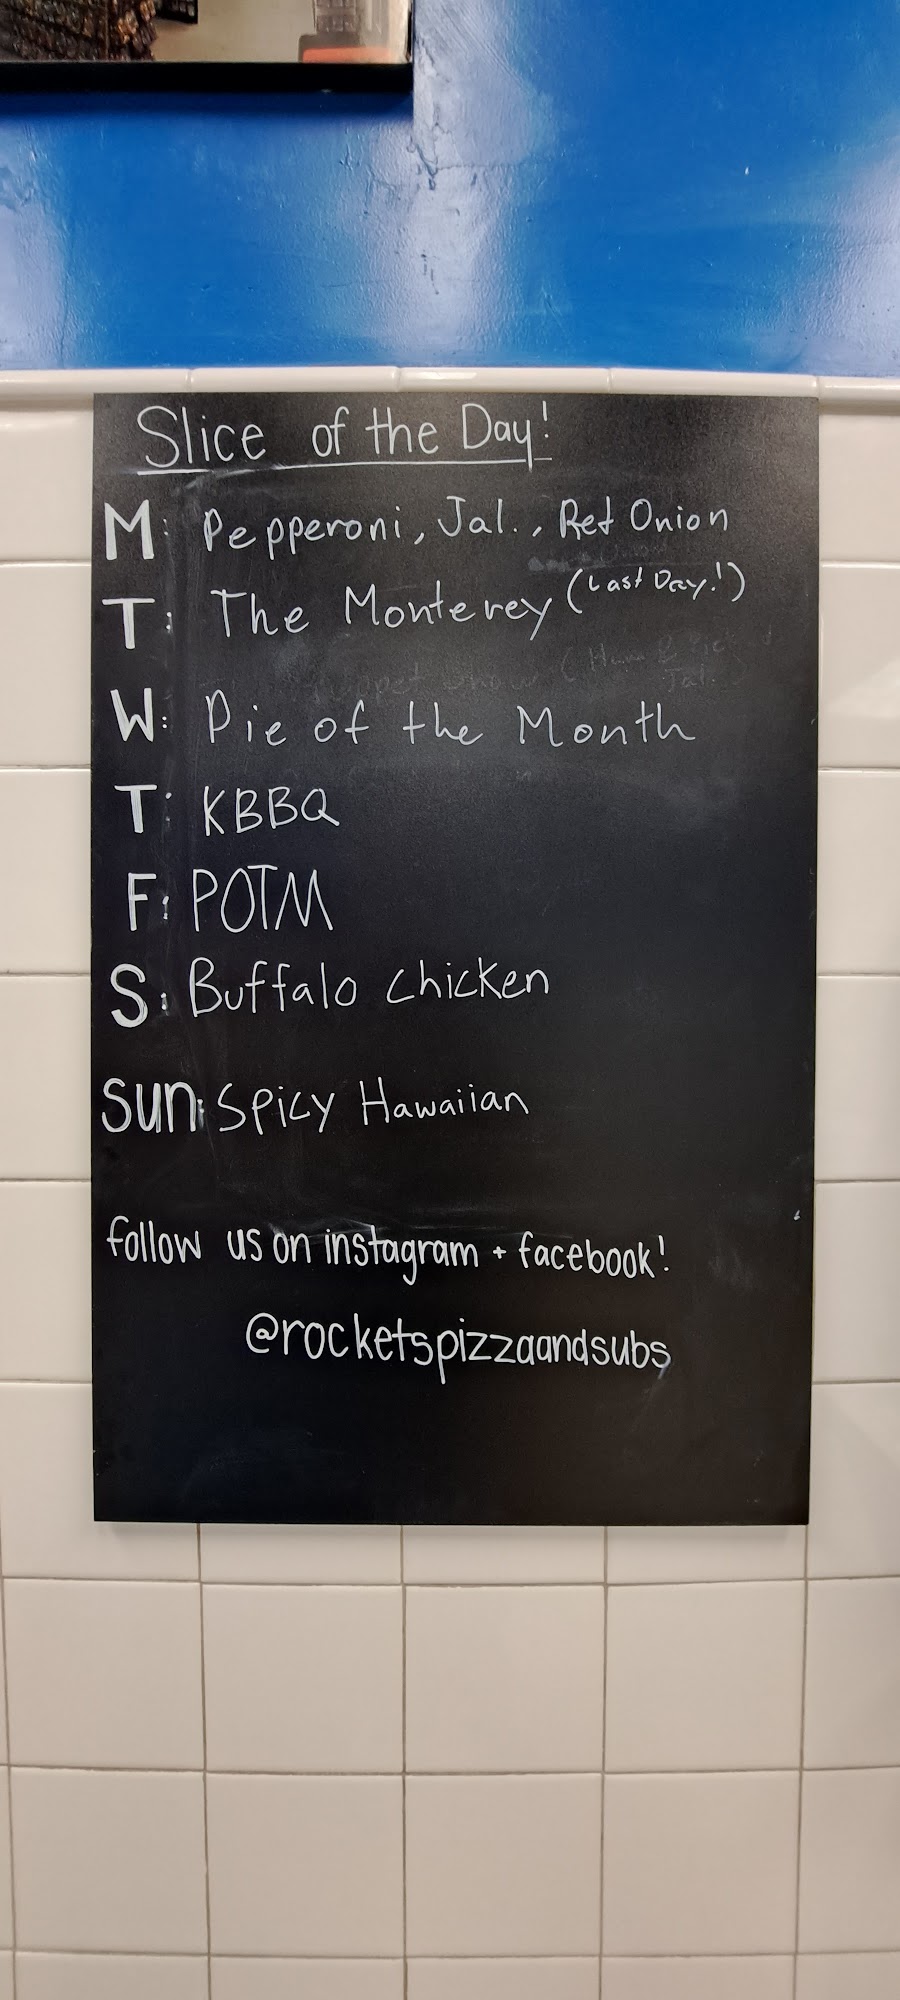 Slice of the Day!
M: Pepperoni, Jal., Red Onion
T: The Monterey (Last Day!)
W: Pie of the Month
T: KBBQ
F: POTM
S: Buffalo Chicken
SUN: Spicy Hawaiian
follow us on instagram + facebook!
@rocketspizzaandsubs